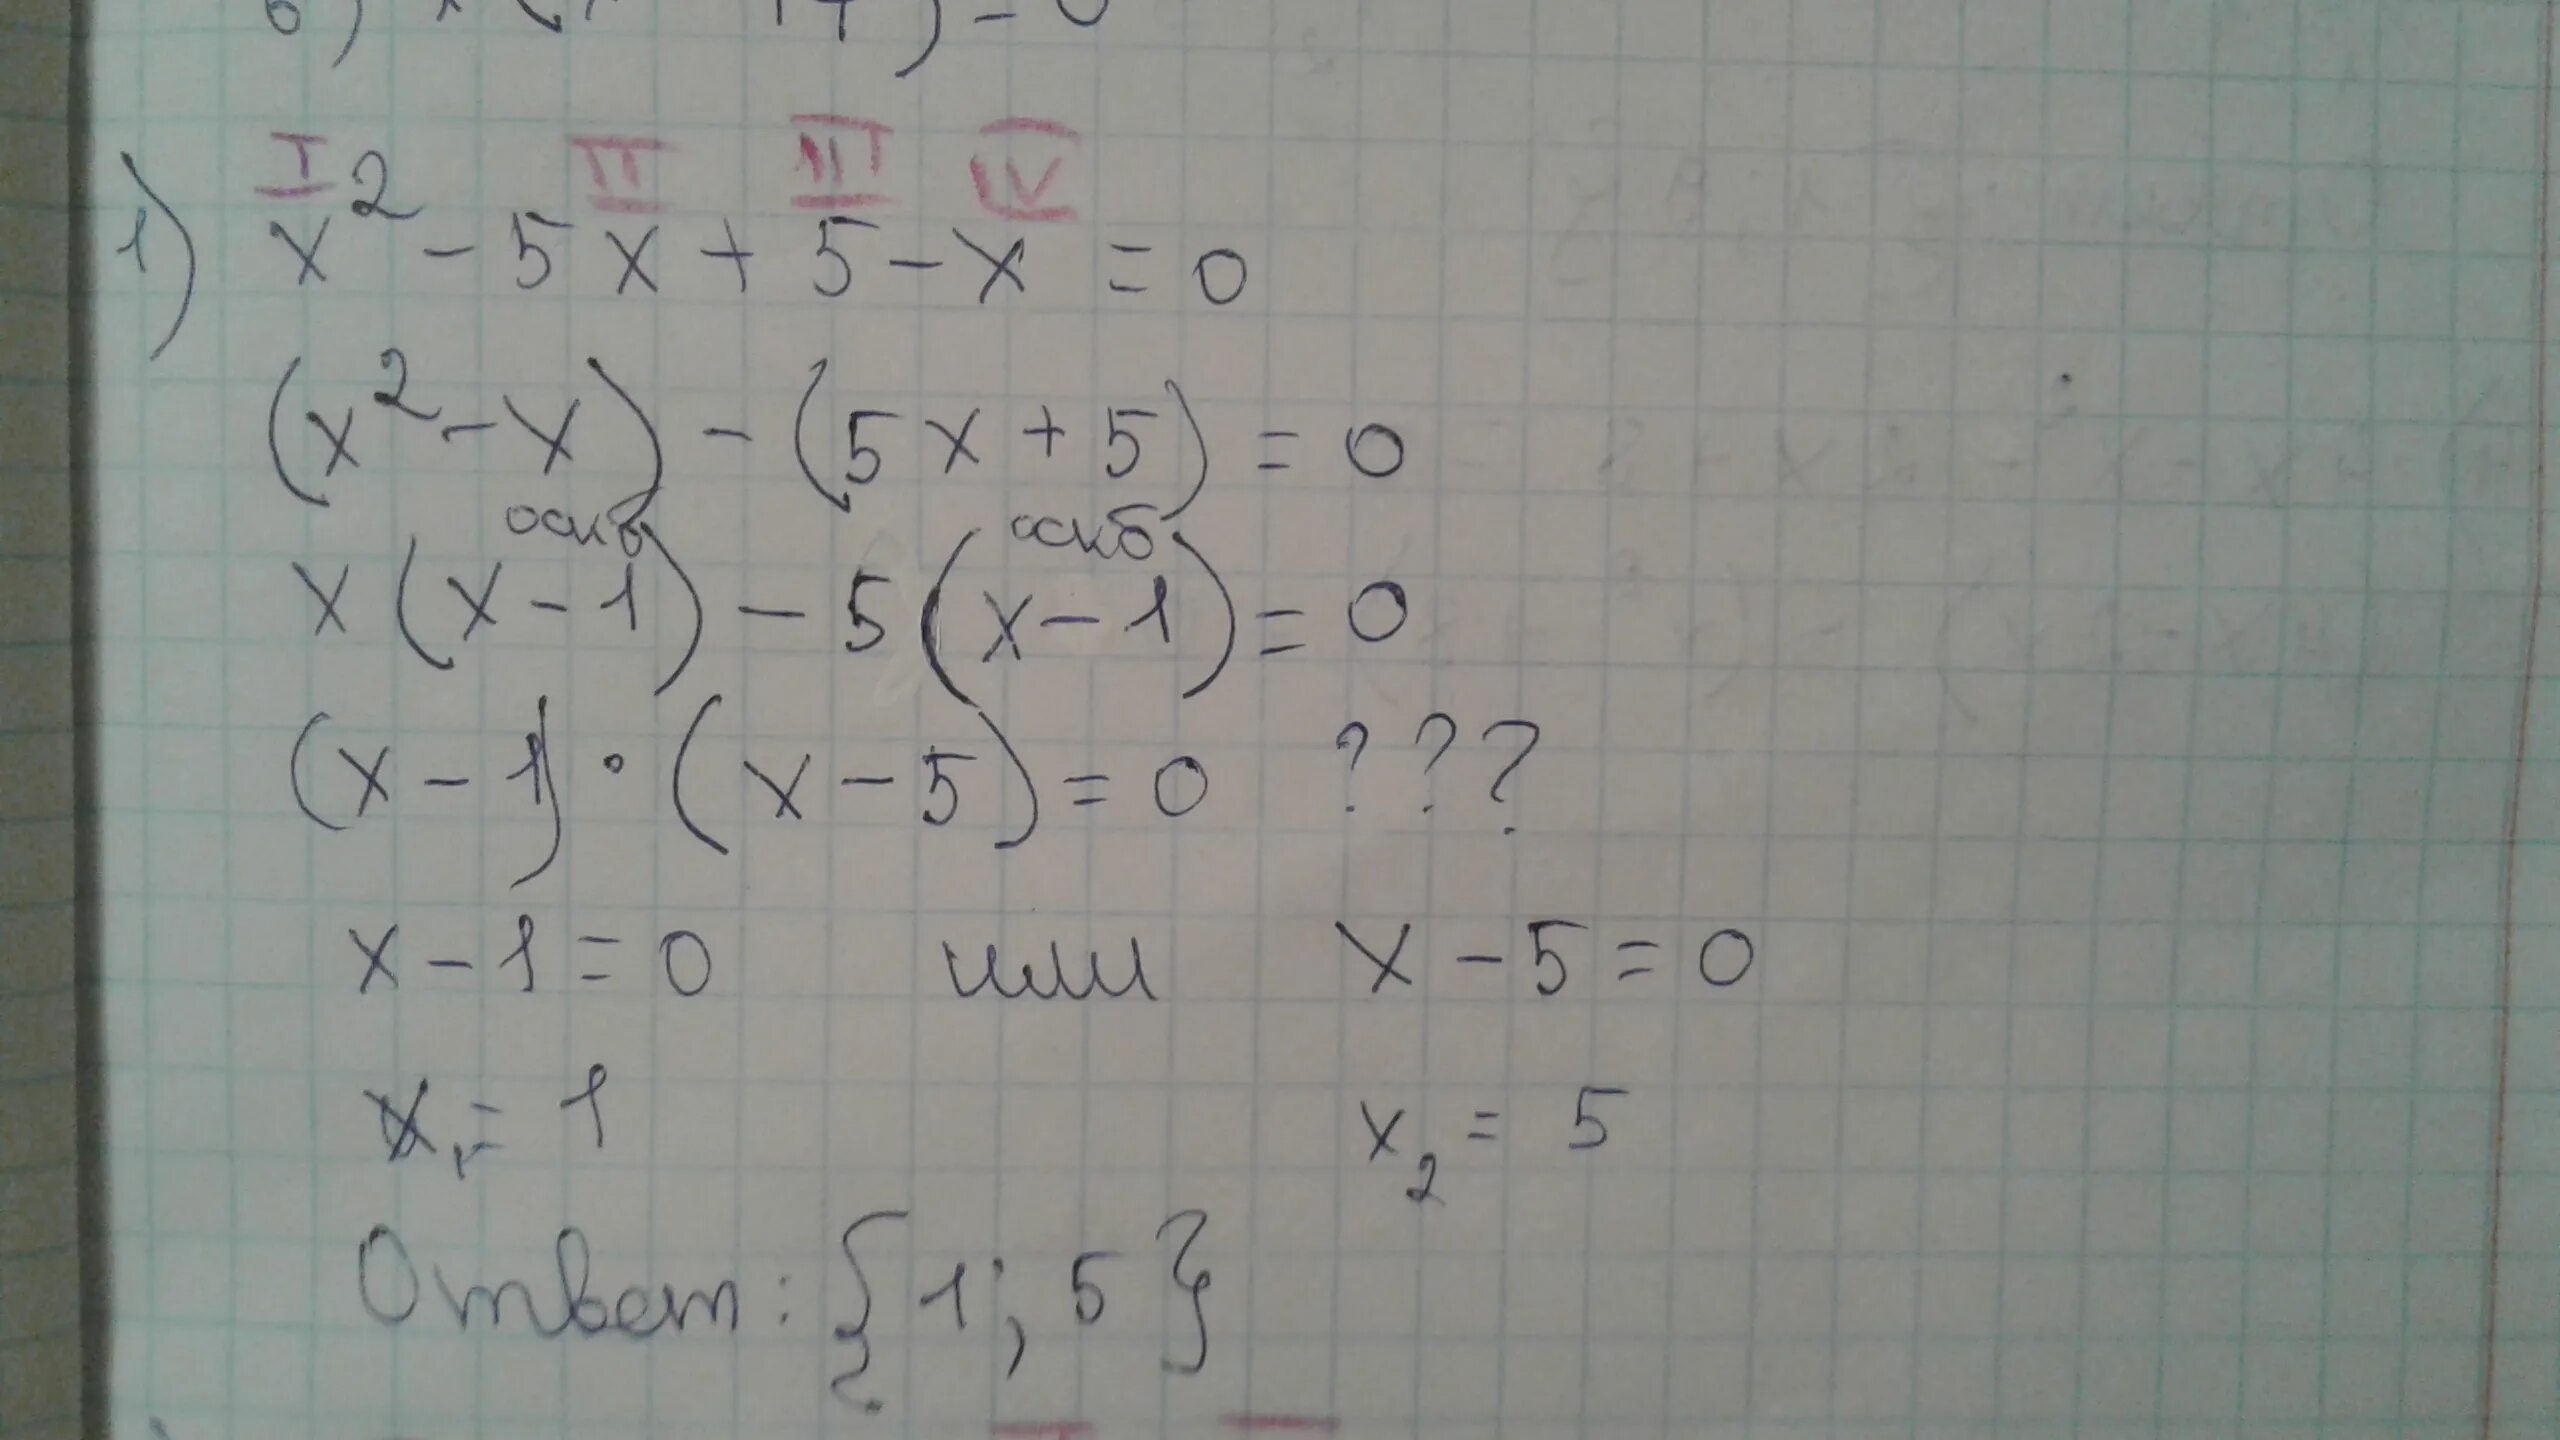 I II III IV
1) x² - 5x + 5 - x = 0
(x² - x) - (5x + 5) = 0
оскб оскб
x(x - 1) - 5(x - 1) = 0
(x - 1) · (x - 5) = 0 ? ? ?
x - 1 = 0 или x - 5 = 0
x₁ = 1 x₂ = 5
Ответ: {1; 5}